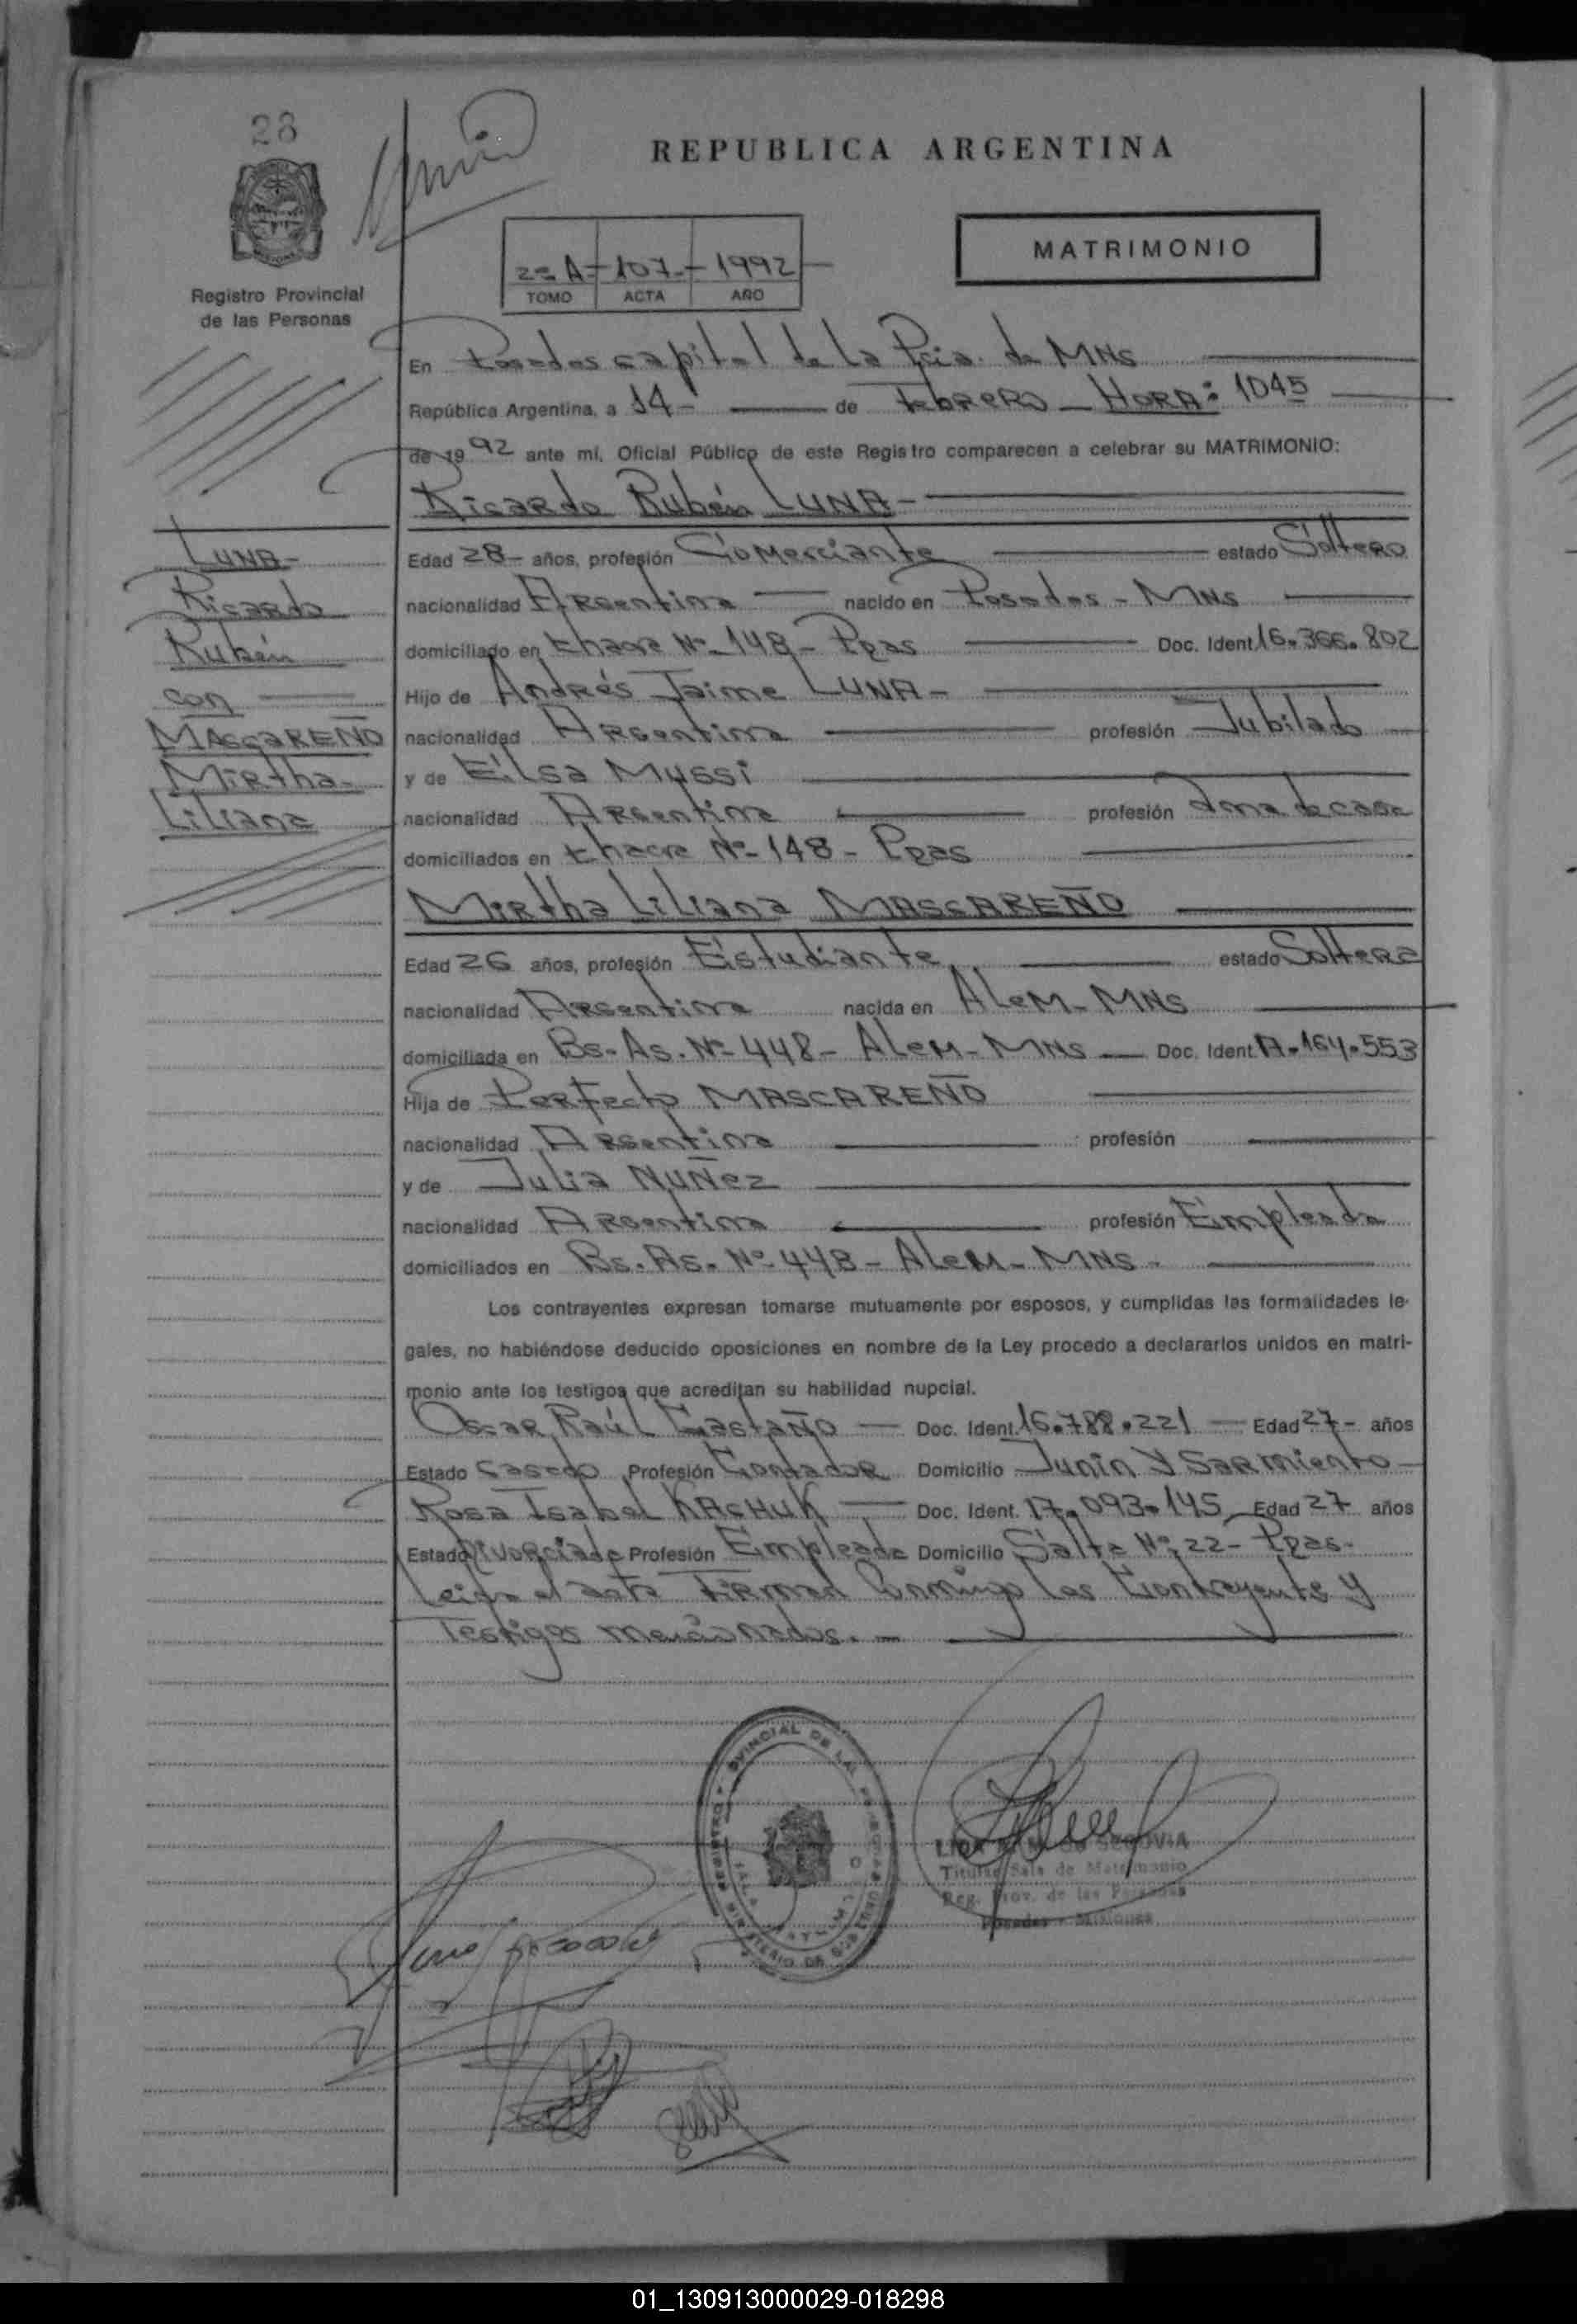 28
REPUBLICA ARGENTINA
MATRIMONIO
2º A - 107 - 1992
TOMO ACTA AÑO
Registro Provincial
de las Personas
En Posadas capital de la Pcia. de MNS
República Argentina, a 14 - de Febrero - HORA: 1045
de 1992 ante mí, Oficial Público de este Registro comparecen a celebrar su MATRIMONIO:
Ricardo Rubén LUNA -
LUNA -
Ricardo
Rubén
con
MASCAREÑO
Mirtha -
Liliana
Edad 28 - años, profesión Comerciante estado Soltero
nacionalidad Argentina nacido en Posadas - MNS
domiciliado en Chacra Nº 148 - Pdas Doc. Ident. 16.366.802
Hijo de Andrés Jaime LUNA -
nacionalidad Argentina profesión Jubilado
y de Elsa Mussi
nacionalidad Argentina profesión Ama de casa
domiciliados en Chacra Nº 148 - Pdas
Mirtha Liliana MASCAREÑO
Edad 26 años, profesión Estudiante estado Soltera
nacionalidad Argentina nacida en ALEM - MNS
domiciliada en Bs. As. Nº 448 - ALEM - MNS Doc. Ident. A.164.553
Hija de Perfecto MASCAREÑO
nacionalidad Argentina profesión
y de Julia NUÑEZ
nacionalidad Argentina profesión Empleada
domiciliados en Bs. As. Nº 448 - ALEM - MNS -
Los contrayentes expresan tomarse mutuamente por esposos, y cumplidas las formalidades le-
gales, no habiéndose deducido oposiciones en nombre de la Ley procedo a declararlos unidos en matri-
monio ante los testigos que acreditan su habilidad nupcial.
Oscar Raúl Doc. Ident. 16.788.221 Edad 27 - años
Estado Casado Profesión Contador Domicilio Junín y Sarmiento
Rosa Isabel KACHUK Doc. Ident. 17.093.145 Edad 27 años
Estado Divorciada Profesión Empleada Domicilio Salta Nº 22 - Pdas -
Leída el acta Firman Conmigo los Contrayentes y
Testigos mencionados. -
SEGOVIA
Titular Sala de Matrimonio
Reg. Prov. de las Personas
Posadas - Misiones
01_130913000029-018298